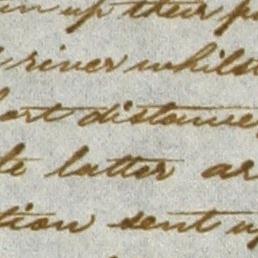 up their
river whilst
distance
latter ar
tion sent up